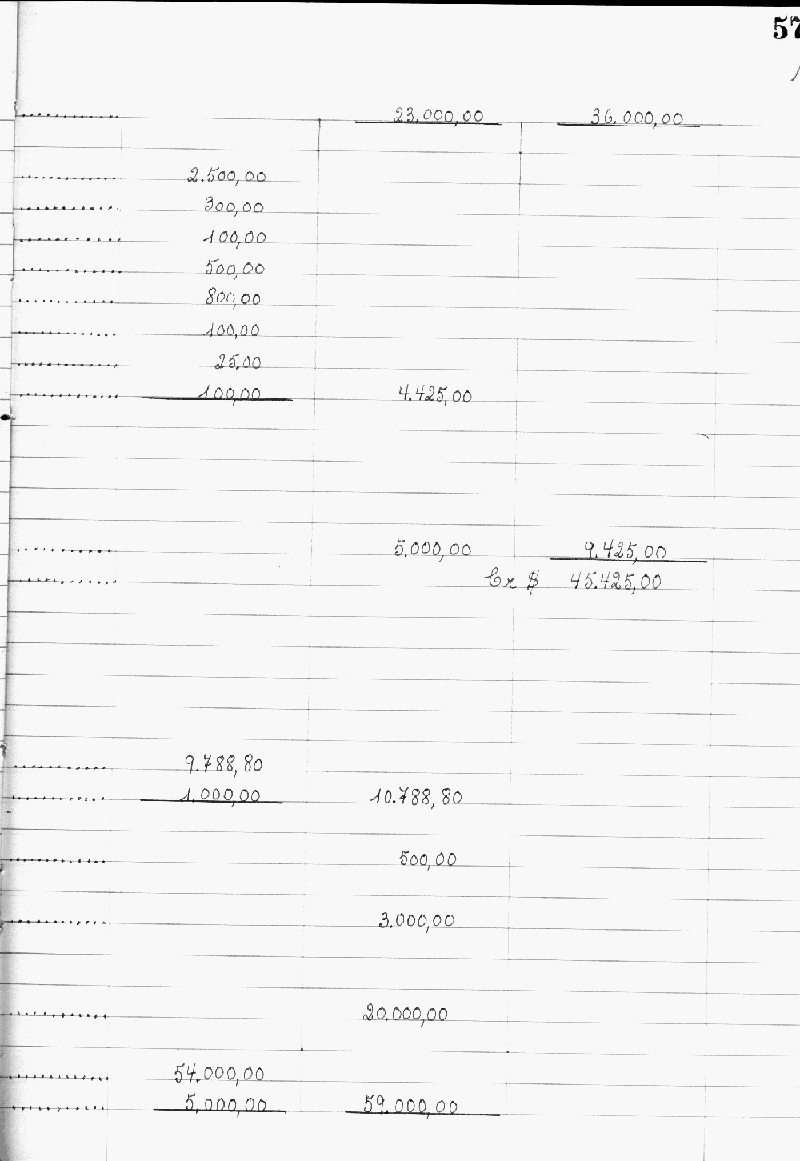 57
23.000,00 36.000,00
2.500,00
300,00
100,00
500,00
800,00
100,00
25,00
100,00 4.425,00
5.000,00 9.425,00
Cr $ 45.425,00
9.788,80
1.000,00 10.788,80
500,00
3.000,00
20.000,00
54.000,00
5.000,00 59.000,00